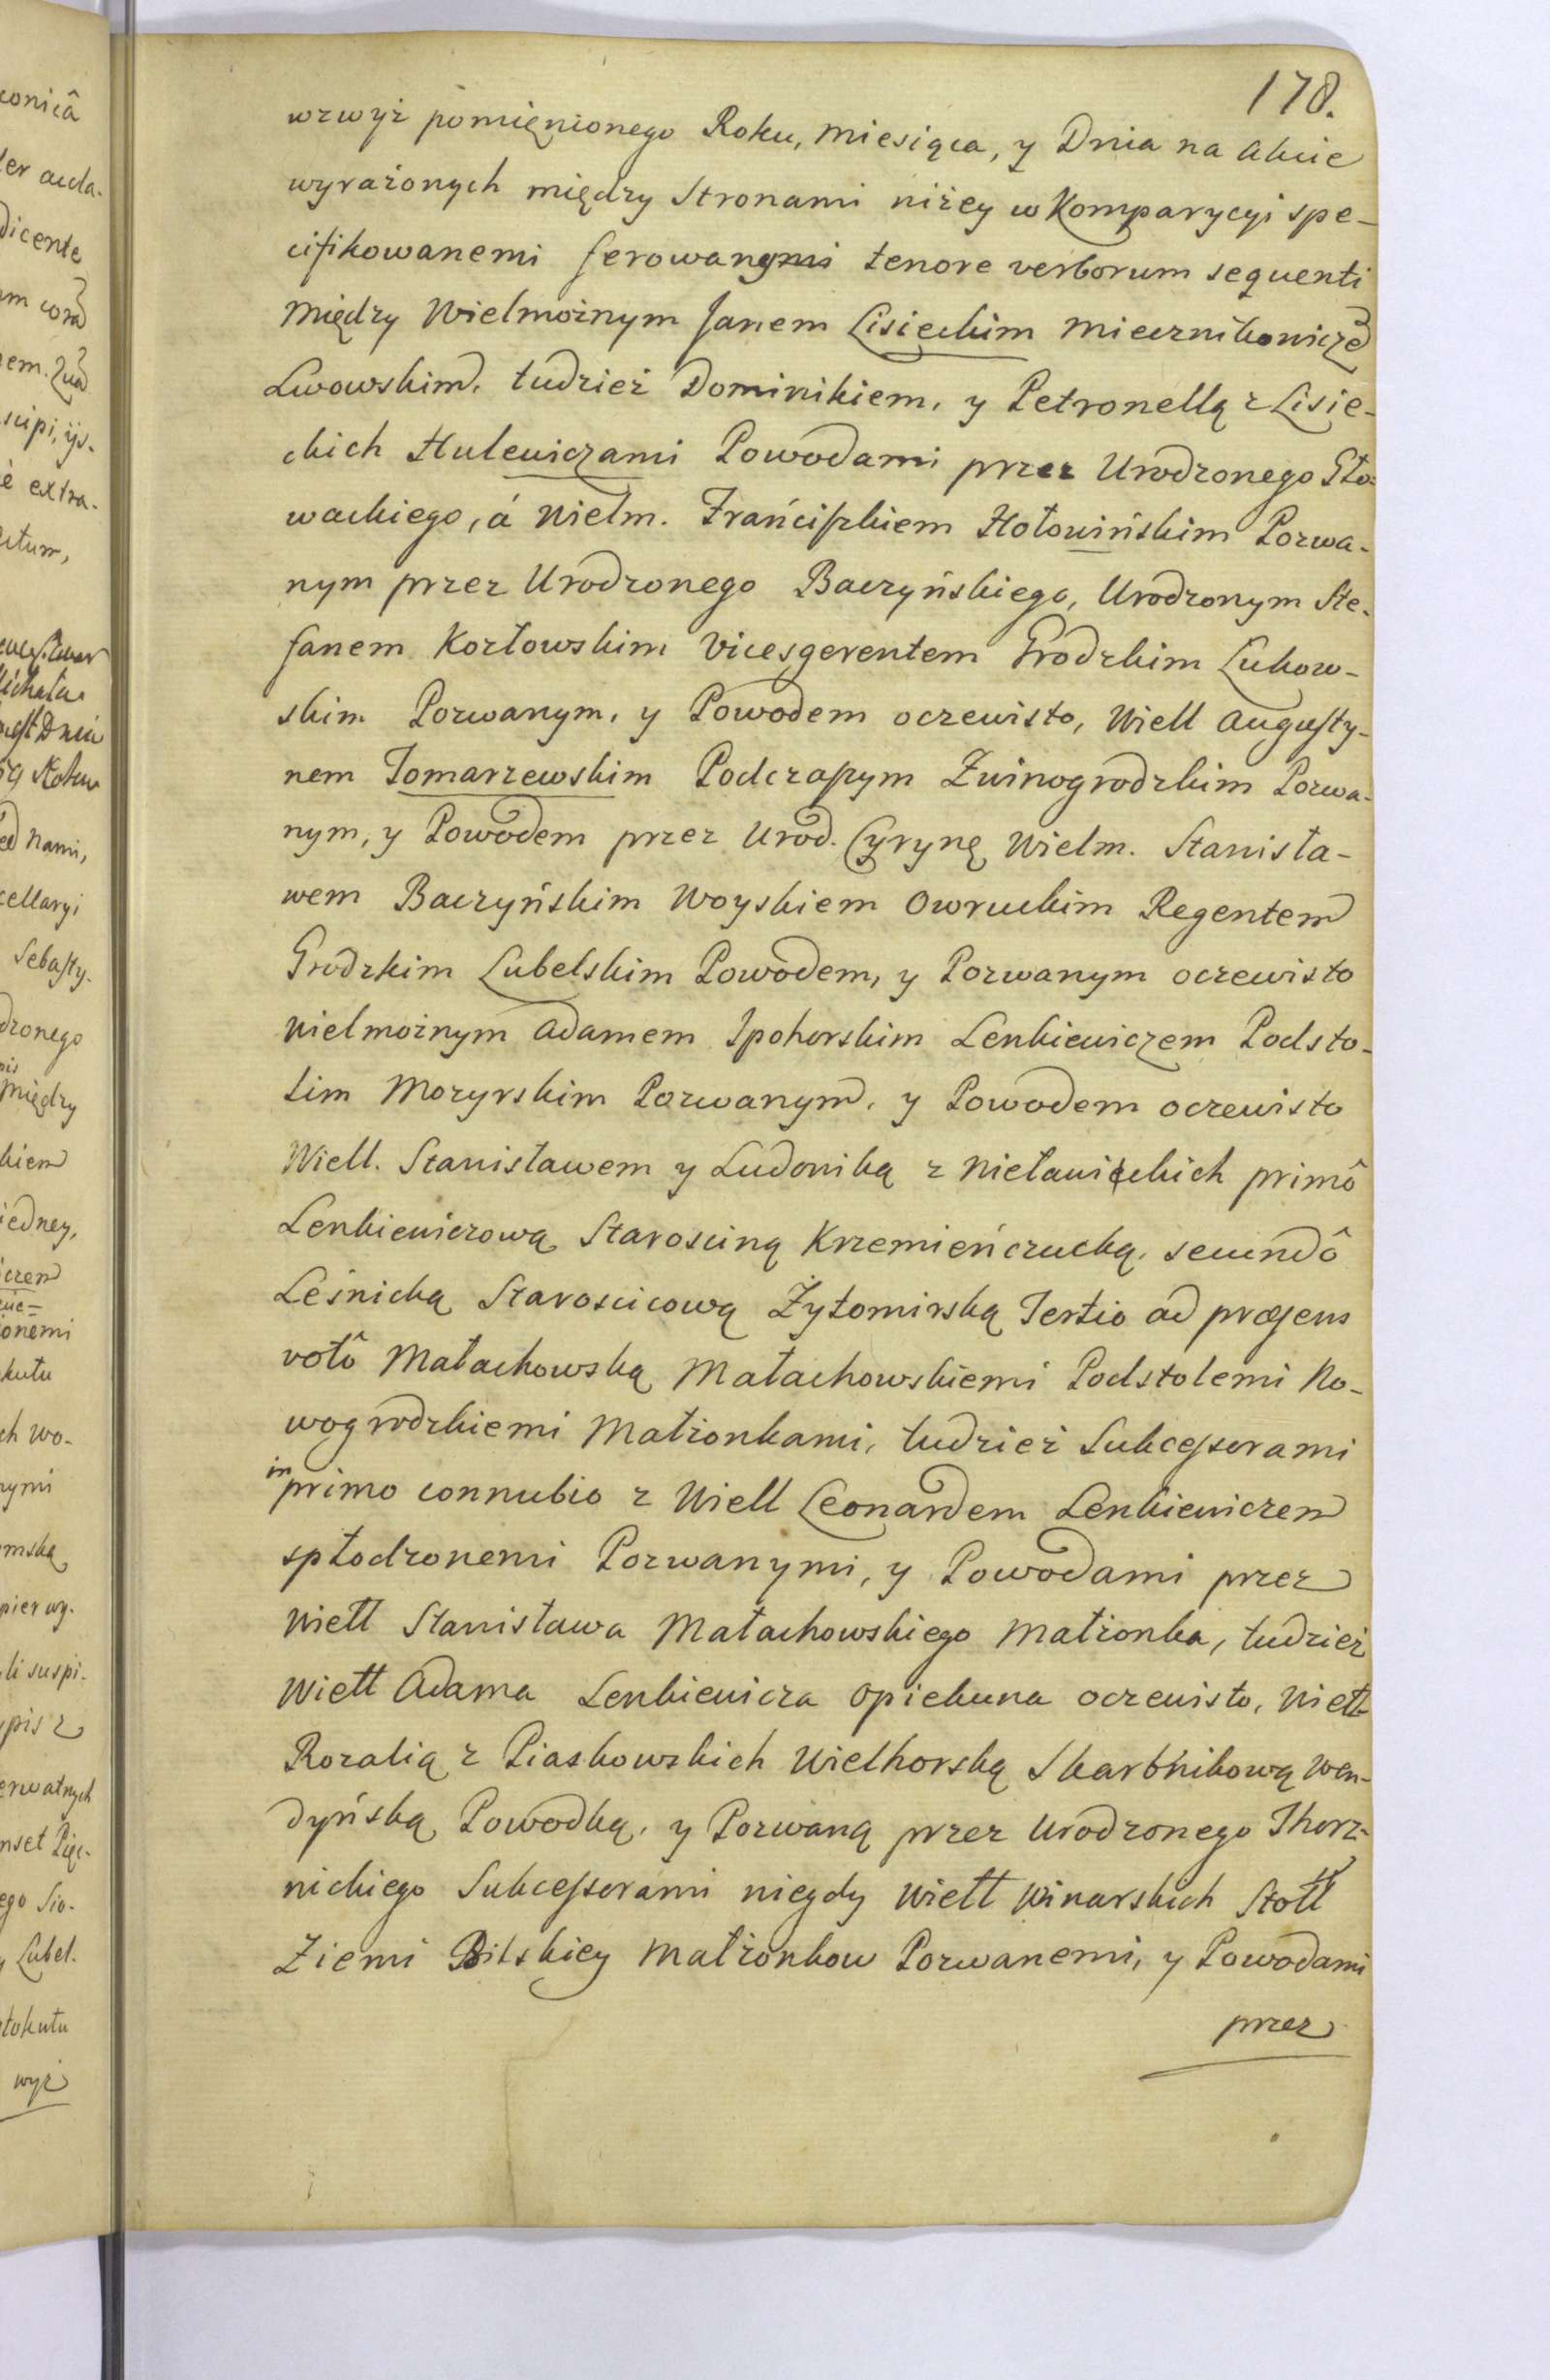 178.
wzwyż pomięnionego Roku, Miesiąca, y Dnia na Akcie
wyrażonych między Stronami niżey w Komparycyi spe-
cifikowanemi ferowanym tenore verborum sequenti
Między Wielmożnym Janem Lisieckim Miecznikowiczem
Lwowskim, tudzież Dominikiem, y Petronellą z Lisie-
ckich Hulewiczami Powodami przez Urodzonego Gło-
wackiego, á Wielm. Franciszkiem Hołowińskim Pozwa-
nym przez Urodzonego Baczyńskiego, Urodzonym Ste-
fanem Kozłowskim Vicesgerentem Grodzkim Łukow-
skim Pozwanym, y Powodem oczewisto, Wiell Augusty-
nem Tomarzewskim Podczaszym Zwinogrodzkim Pozwa-
nym, y Powodem przez Urod. Cyrynę Wielm. Stanisła-
wem Baczyńskim Woyskiem Owruckim Regentem
Grodzkim Lubelskim Powodem, y Pozwanym oczewisto
Wielmożnym Adamem Ipohorskim Lenkiewiczem Podsto-
lim Mozyrskim Pozwanym, y Powodem oczewisto
Wiell. Stanisławem y Ludowiką z Nieławickich primô
Lenkiewiczową Starościną Krzemieńczucką, secundô
Leśnicką Starościcową Żytomirską Tertio ad præsens
votô Małachowską Małachowskiemi Podstolemi No-
wogrodzkiemi Małżonkami, tudzież Sukcessorami
in primo connubio z Wiell Leonardem Lenkiewiczem
spłodzonemi Pozwanymi, y Powodami przez
Wiell Stanisława Małachowskiego Małżonka, tudzież
Wiell Adama Lenkiewicza Opiekuna oczewisto, Wiell
Rozalią z Piaskowskich Wielhorską Skarbnikową Wen-
dyńską Powodką, y Pozwaną przez Urodzonego Thorz-
nickiego Sukcessorami niegdy Wiell Winarskich Stoll
Ziemi Bilskiey Małżonkow Pozwanemi, y Powodami
przez